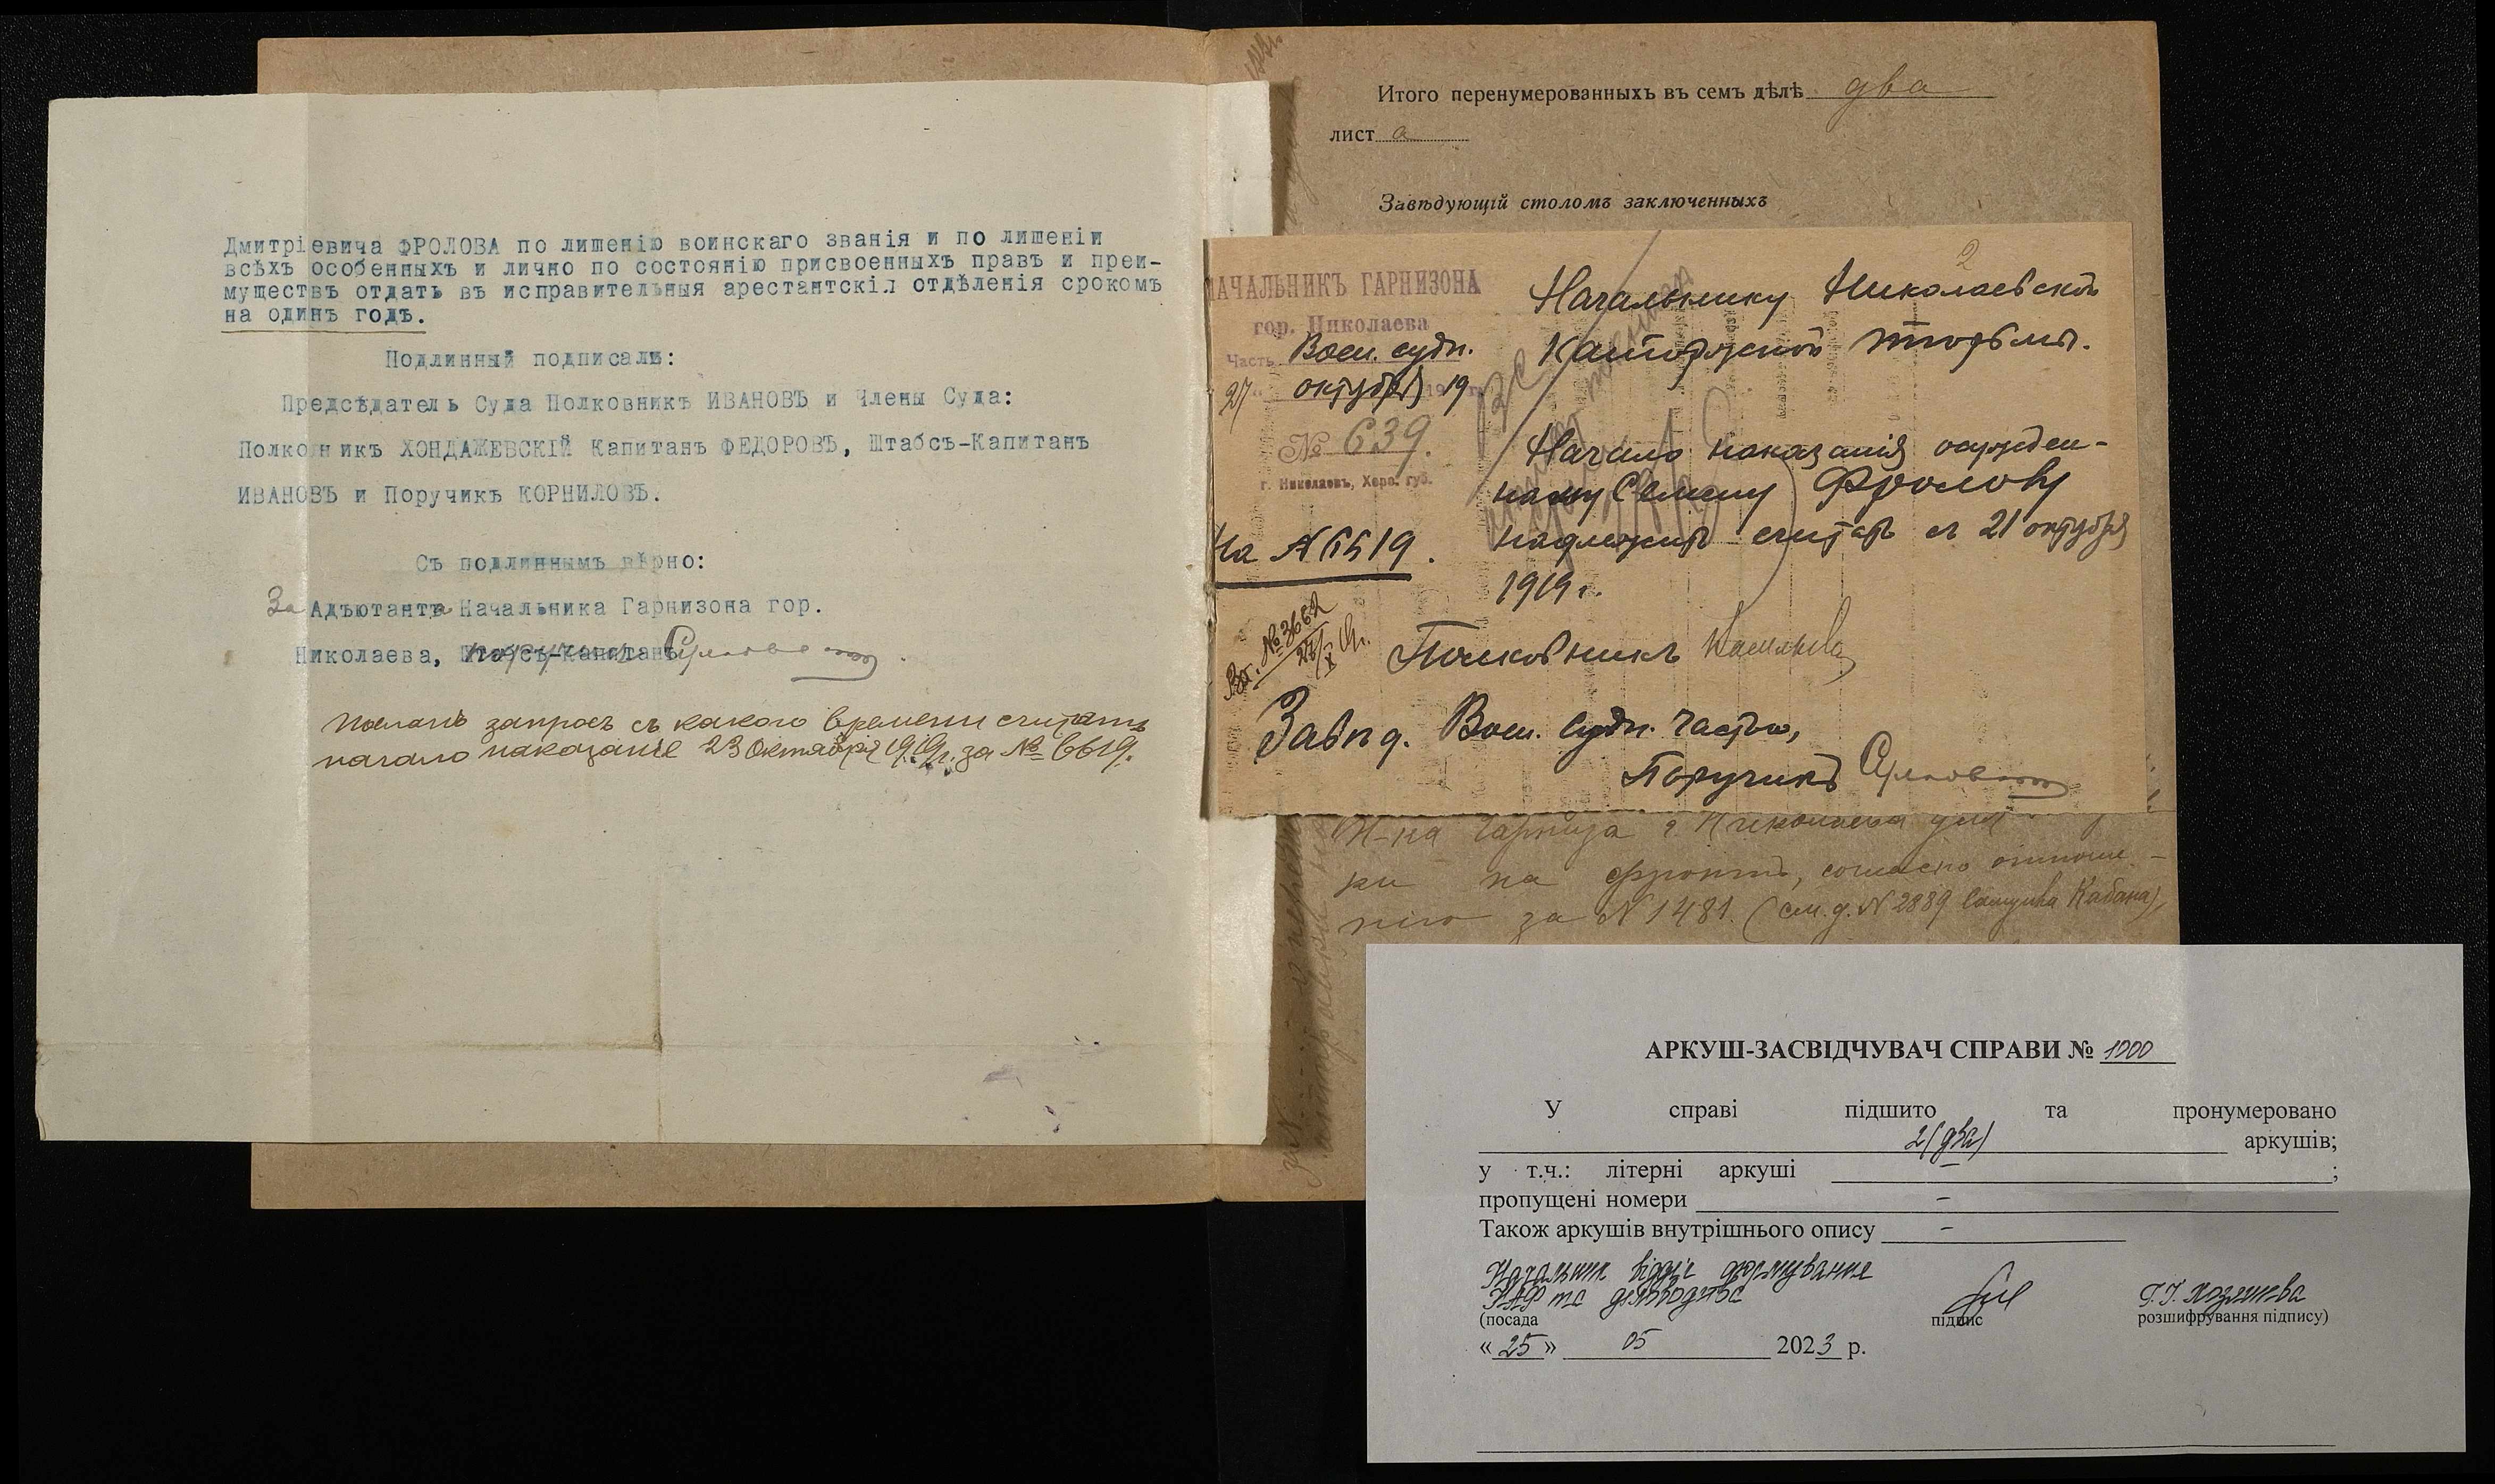 Дмитріевича ФРОЛОВА по лишенію воинскаго званія и по лишеніи
всѣхъ особенныхъ и лично по состоянію присвоенныхъ правъ и преи-
муществъ отдать въ исправительныя арестантскія отдѣленія срокомъ
на одинъ годъ.
Подлинный подписали:
Предсѣдатель Суда Полковникъ ИВАНОВЪ и Члены Суда:
Полковникъ ХОНДАЖЕВСКІЙ Капитанъ ФЕДОРОВЪ, Штабсъ-Капитанъ
ИВАНОВЪ и Поручикъ КОРНИЛОВЪ.
Съ подлиннымъ вѣрно:
За Адъютанта Начальника Гарнизона гор.
Николаева, Штабсъ-Капитанъ
Посланъ запросъ съ какого времени считать
начало наказанія 23 Октября 1919г. за № 6619.
Итого перенумерованныхъ въ семъ дѣлѣ два
лист а
Завѣдующій столомъ заключенныхъ
2
НАЧАЛЬНИКЪ ГАРНИЗОНА
гор. Николаева
Часть Воен. судн.
27 октября 1919 г.
№ 639.
г. Николаевъ, Херс. губ.
На №6619.
Вх. №3662
27/X 19г.
Начальнику Николаевской
Каторжной тюрьмы.
Начало наказанія осужден-
ному Семену Фролову
надлежитъ считать съ 21 октября
1919 г.
Полковникъ
Завѣд. Воен. Судн. частью,
Поручикъ
Н-ка Гарниза г. Николаева для
ки на фронтъ, согласно отноше-
нію за №1481. (см. д. №2889 Кабана)
АРКУШ-ЗАСВІДЧУВАЧ СПРАВИ № 1000
У справі підшито та пронумеровано
2 (два) аркушів;
у т.ч.: літерні аркуші ;
пропущені номери –
Також аркушів внутрішнього опису –
Начальник відділ формування
НАФ та діловодства
(посада
підпис
розшифрування підпису)
«25» 05 2023 р.